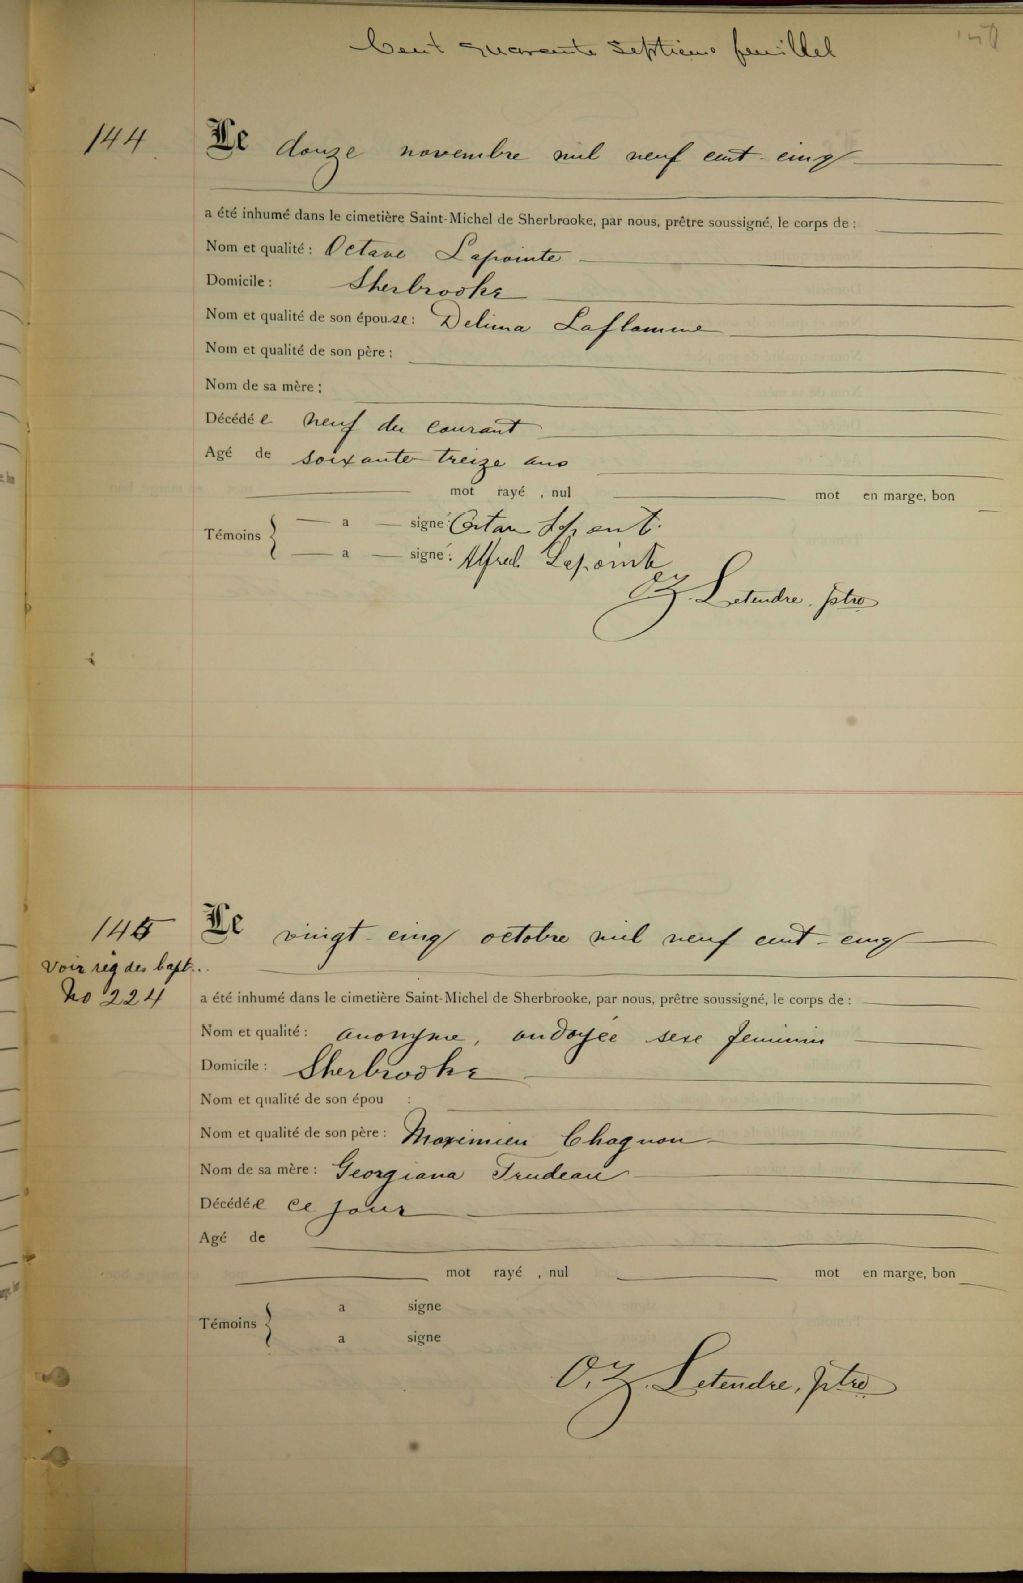 Cent quarante septième feuillet
144
Le douze novembre mil neuf cent-cinq
a été inhumé dans le cimetière Saint-Michel de Sherbrooke, par nous, prêtre soussigné, le corps de :
Nom et qualité : Octave Lapointe
Domicile : Sherbrooke
Nom et qualité de son épouse : Delima Laflamme
Nom et qualité de son père :
Nom de sa mère :
Décédé le neuf du courant
Agé de soixante-treize ans
mot rayé , nul mot en marge, bon
Témoins
a signé :
a signé : Alfred Lapointe
O. Z. Letendre, ptre
145
Le vingt-cinq octobre mil neuf cent-cinq
Voir rég des bapt..
No 224
a été inhumé dans le cimetière Saint-Michel de Sherbrooke, par nous, prêtre soussigné, le corps de :
Nom et qualité : anonyme, ondoyée sexe feminin
Domicile : Sherbrooke
Nom et qualité de son épou :
Nom et qualité de son père : Maximien Chagnon
Nom de sa mère : Georgiana Trudeau
Décédée ce jour
Agé de
mot rayé , nul mot en marge, bon
Témoins
a signe
a signe
O. Z. Letendre, ptre